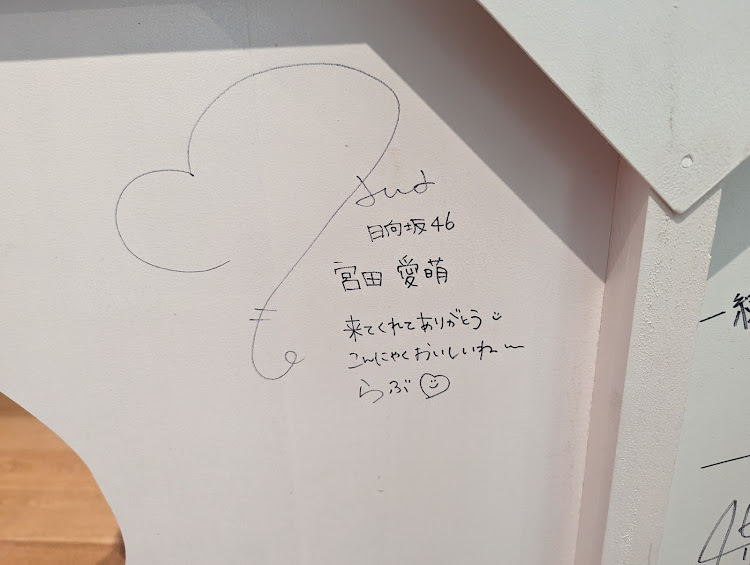 日向坂46
宮田 愛萌
来てくれてありがとう
こんにゃくおいしいねー
らぶ